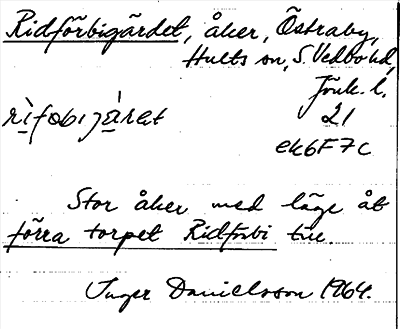 Ridförbigärdet, åker, Östraby,
Hults sn, S. Vedbo hd,
Jönk. l.
rìfobijàrat 21
ek6F7c
Stor åker med läge åt
förra torpet Ridförbi till.
Inger Danielsson 1964.